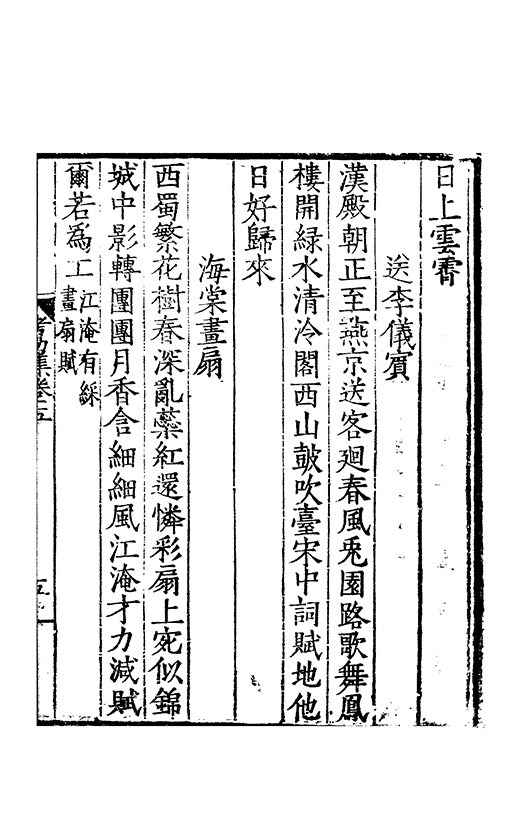 日上雲霄
送李儀賓
漢殿朝正至燕京送客廻春風兎園路歌舞鳳
樓開緑水清冷閣西山皷吹臺宋中詞賦地他
日好歸來
海棠畫扇
西蜀繁花樹春深亂蘂紅還憐彩扇上宛似錦
城中影轉團團月香含細細風江淹才力減賦
爾若爲工江淹有綵
畫扇賦
集卷五
五